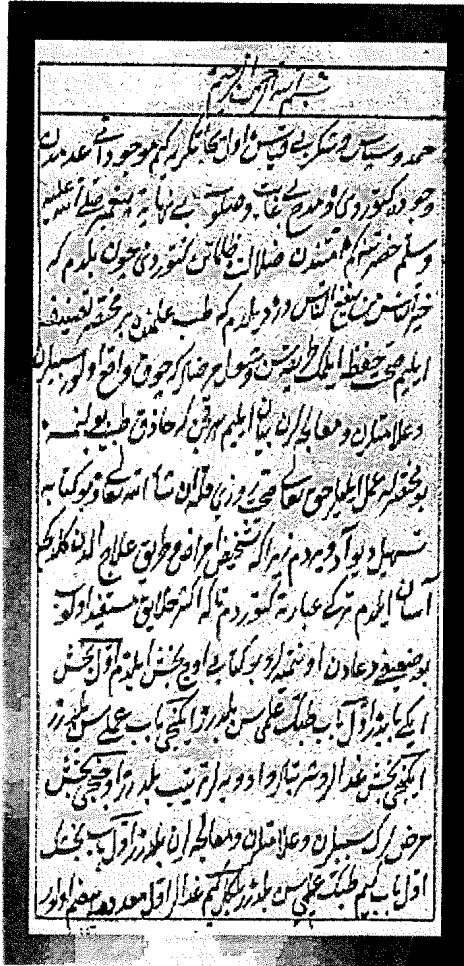 بسم الله الرحمن الرحيم
حمد وسپاس وشكر بى قياس اول تكرى يه كيم موجوداتى عدمدن
وجوده كتوردى ومدح بى غايت وصلوات بى نهايه پيغمبر صلى الله عليه
وسلم حضرتنه كم امتندن ضلالت ظلماتن كتوردى چون بلدم كه
خير الناس من ينفع الناس در ديلدم كه طب علمنده بر مختصر تصنيف
ايليم صحت حفظ ايلمك طريقين وشول مرضلر كه چوق واقع اولور سببلرن
وعلامتلرن ومعالجه لرن بيان ايليم هر قنده كه حاذق طبيب بولنميه
بو مختصرله عمل ايليه لر حق تعالى صحت روزى قله ان شاء الله تعالى وبو كتابه
تسهيل ديو آد ويردم زيرا كه تشخيص امراض وطريق علاج الدن كلدكجه
آسان ايلدم تركى عبارته كتوردم تا كه اكثر خلايق مستفيد اولوب
بو ضعيفى دعادن اونتميه لر وبو كتابى اوچ بخش ايلدم اول بخش
ايكى بابدر اول باب طبك علمى سن بلدرر ايكنجى باب عملى سن بلدرر
ايكنجى بخش غدالر وشربتلر وادويه لر ترتيب بلدرر اوچنجى بخش
مرضلرك سببلرن وعلامتلرن ومعالجه لرن بلدرر اول باب اول بخشك
اول باب كيم طبك علمى سن بلدرر بلكل كيم غدالر اول معده ده هضم اولور